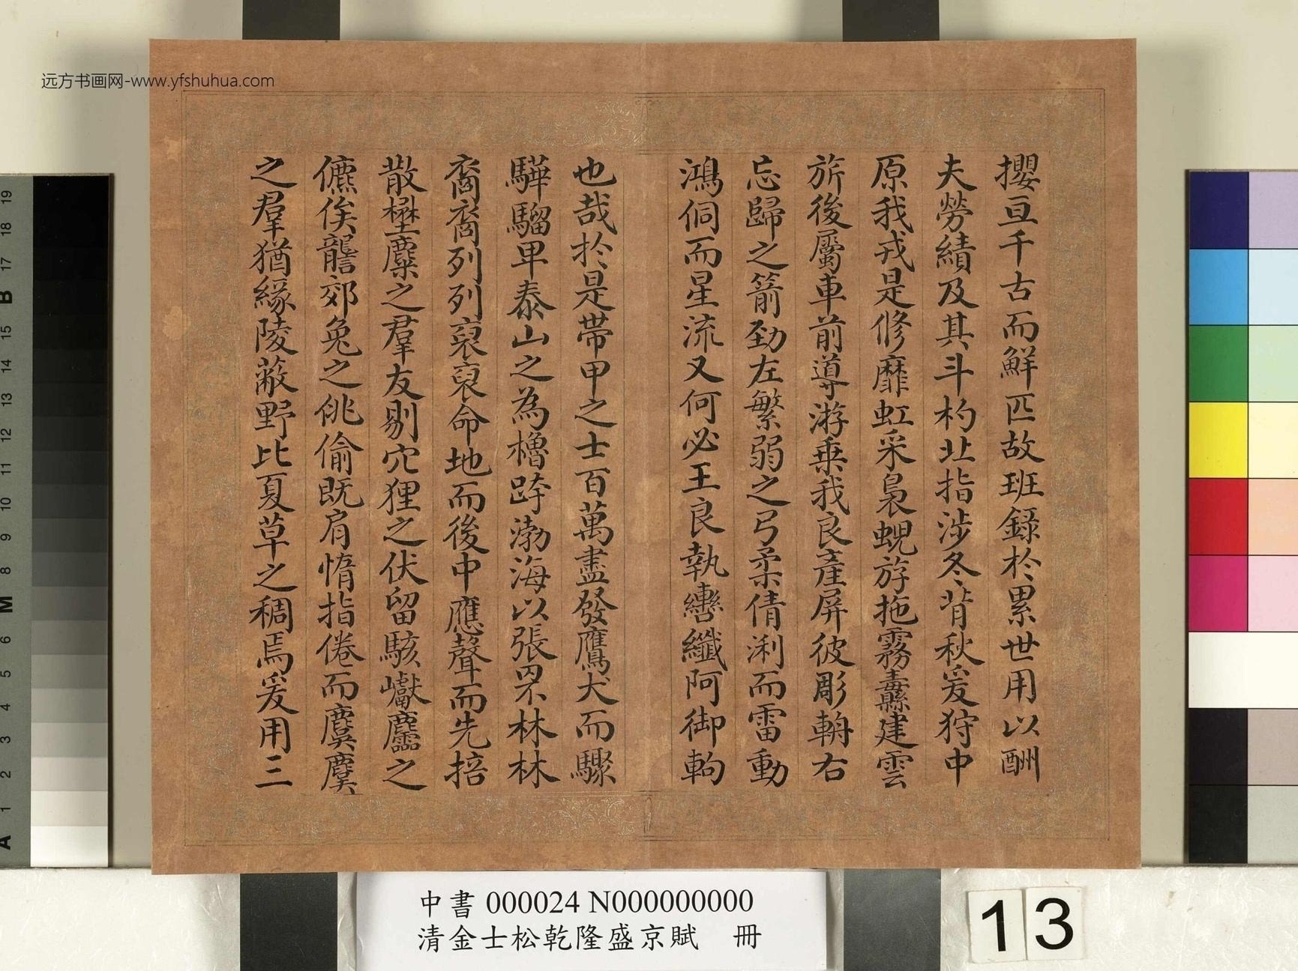 远方书画网-www.yfshuhua.com
攖亘千古而鮮匹故班錄於累世用以酬
夫勞績及其斗杓北指涉冬背秋爰狩中
原我戎是修靡虹采裊蜺斿拖霧纛建雲
旂後屬車前導游乗我良產屏彼彫輈右
忘歸之箭勁左繁弱之弓柔倩浰而雷動
鴻侗而星流又何必王良執轡纖阿御軥
也哉於是帶甲之士百萬盡發鷹犬而驟
驊騮卑泰山之為櫓跨渤海以張罘林林
裔裔列列裒裒命地而後中應聲而先掊
散樷麋之羣友剔穴狸之伏留駭巘麢之
儦俟讋郊兔之佻偷既肩惰指倦而麌麌
之羣猶緣陵蔽野比夏草之稠焉爰用三
中書 000024 N000000000
清金士松乾隆盛京賦 冊
13
19
18
17
B
15
14
13
12
11
10
9
8
M
6
5
4
3
2
1
A